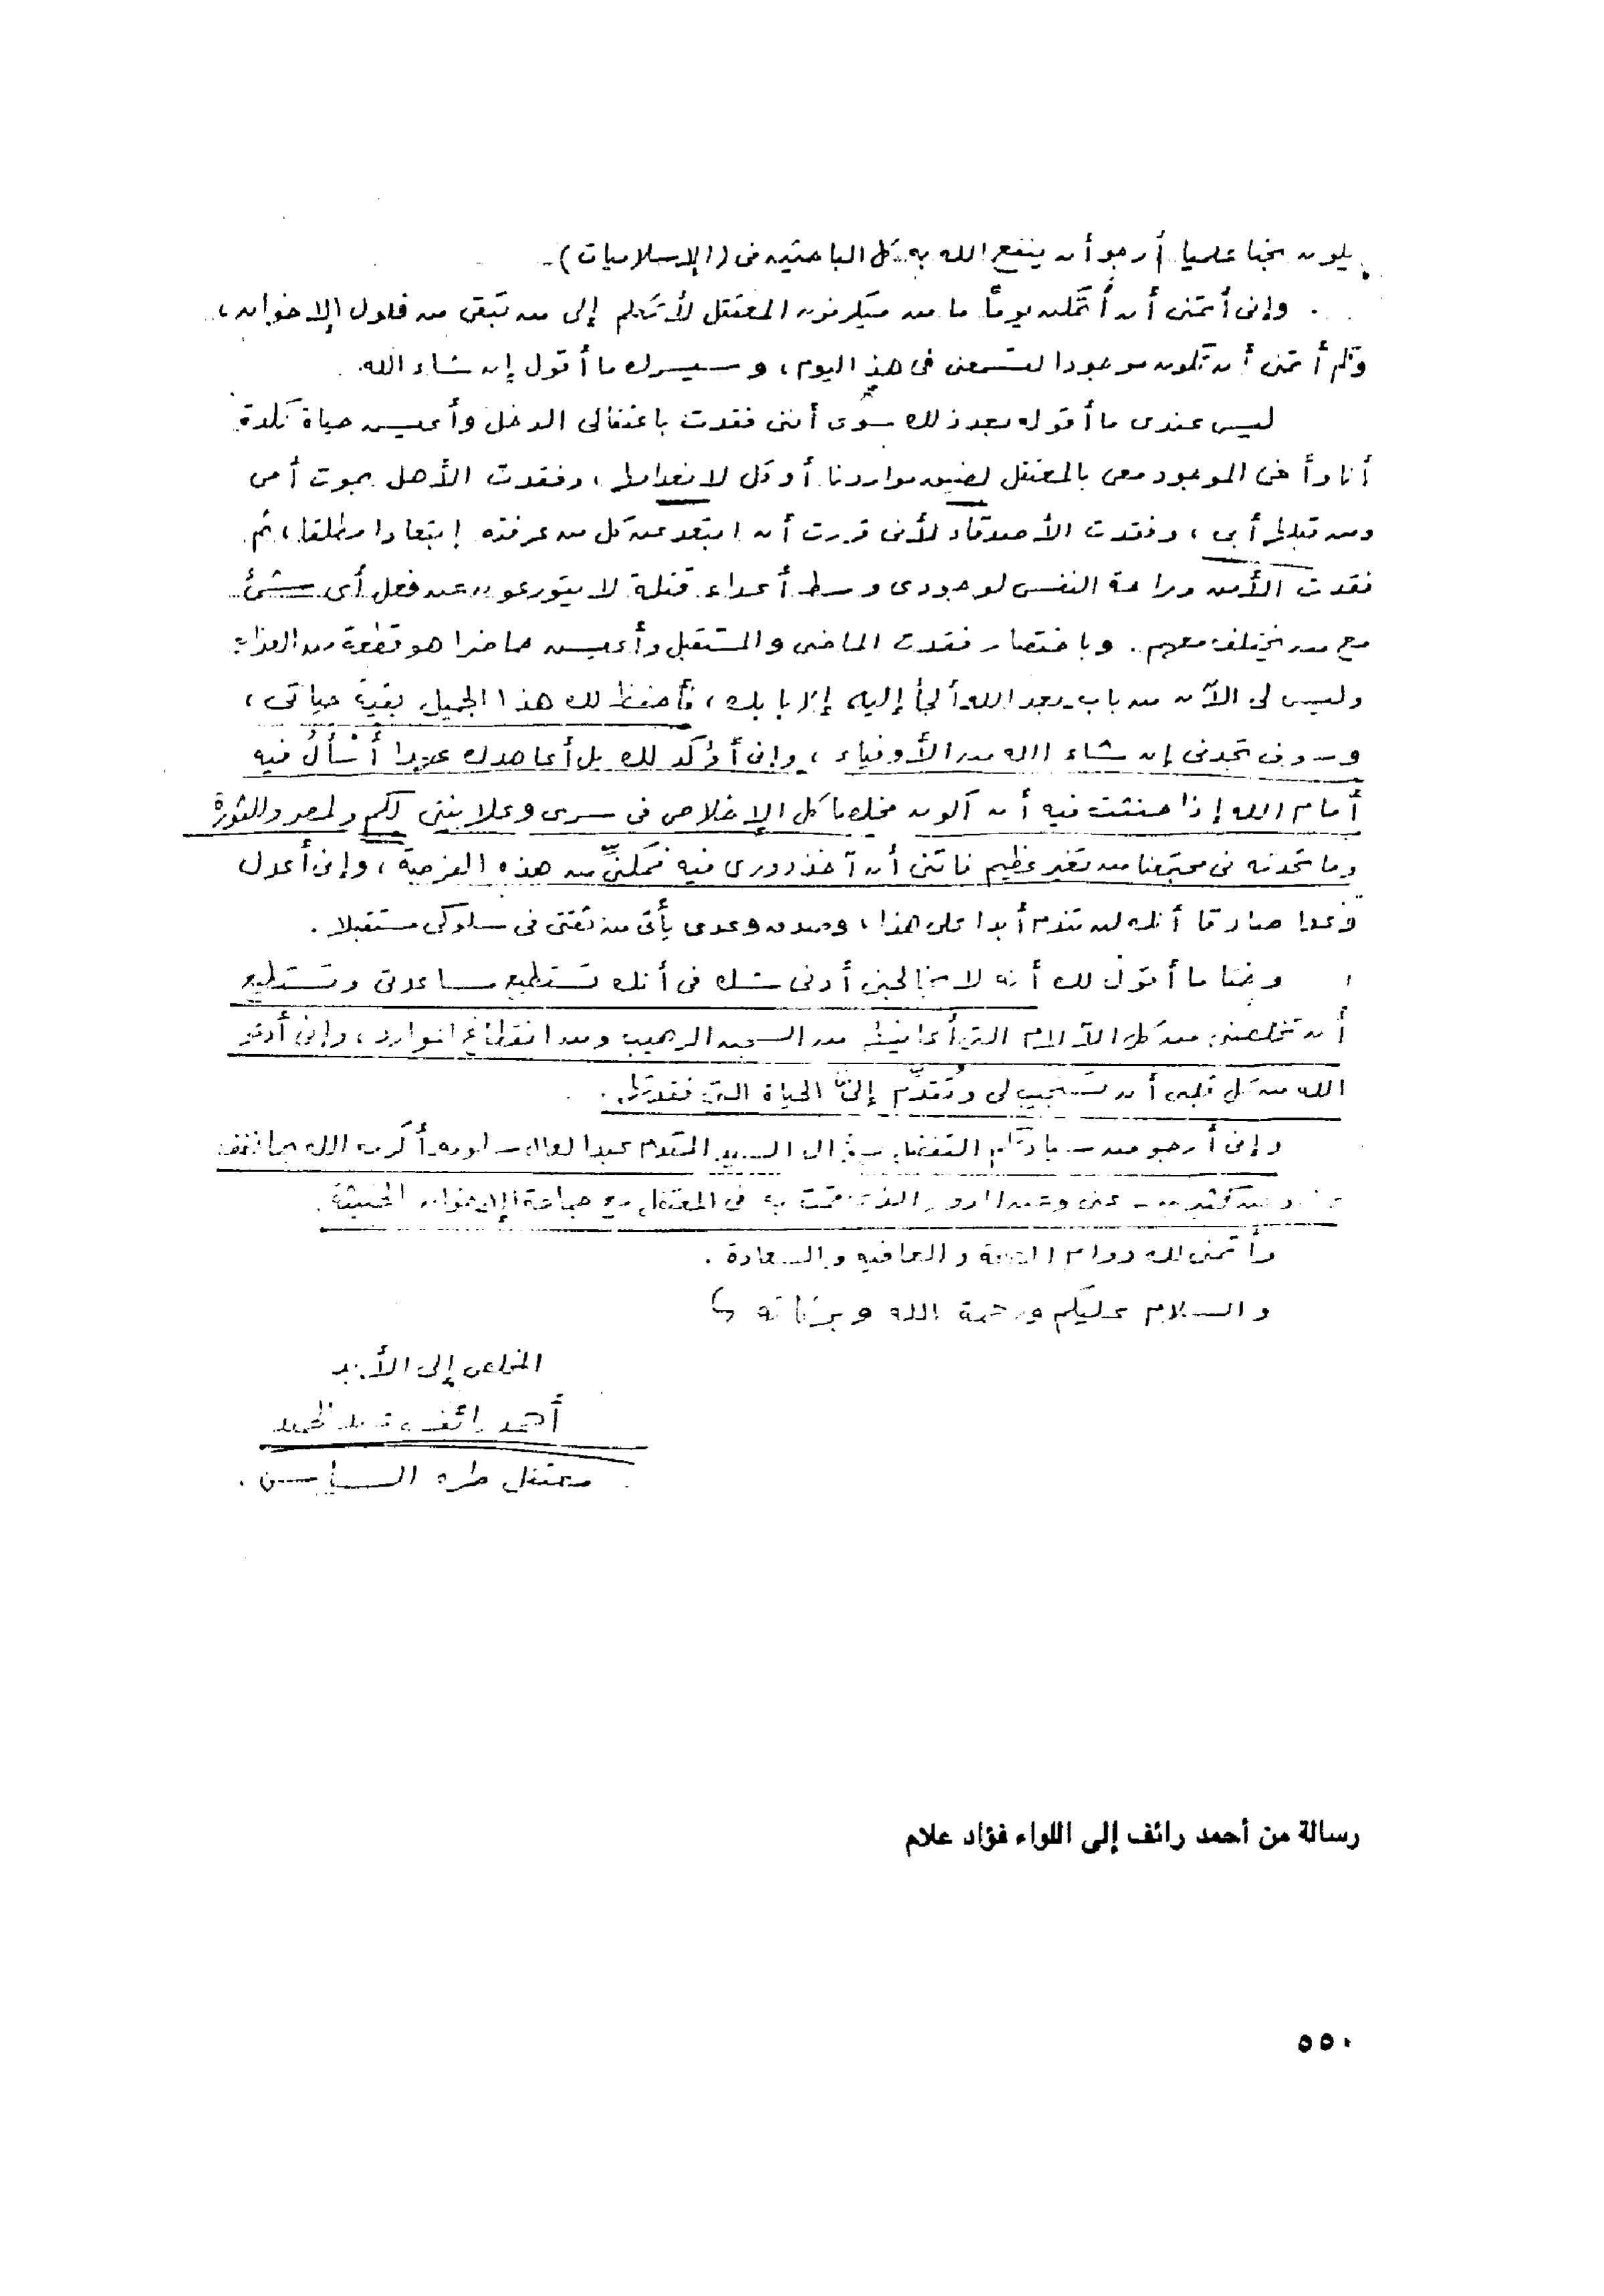 يكون بحثا علميا أرجو أن ينفع الله به كل الباحثين فى (الإسلاميات) .
وإنى أتمنى أن أتمكن يوما ما من ميكرفون المعتقل لأتكلم إلى من تبقى من فلول الإخوان ،
وكم أتمنى أن تكون موجودا لتسمعنى فى هذا اليوم ، وسيسرك ما أقول إن شاء الله .
ليس عندى ما أقوله بعد ذلك سوى أننى فقدت باعتقالى الدخل وأعيش حياة نكدة
أنا وأخى الموجود معى بالمعتقل لضيق مواردنا أو قل لانعدامها ، وفقدت الأهل بموت أمى
ومن قبلها أبى ، وفقدت الأصدقاء لأنى قررت أن ابتعد عن كل من عرفته إبتعادا مطلقا ، ثم
فقدت الأمن وراحة النفس لوجودى وسط أعداء قتلة لا يتورعون عن فعل أى شئ
مع من يختلف معهم . وباختصار فقدت الماضى والمستقبل وأعيش حاضرا هو قطعة من العذاب
وليس لى الآن من باب بعد الله ألجأ إليه إلا بابك ، فأحفظ لك هذا الجميل بقية حياتى ،
وسوف تجدنى إن شاء الله من الأوفياء ، وإنى أؤكد لك بل أعاهدك عهدا أُسأل فيه
أمام الله إذا حنثت فيه أن أكون مخلصا كل الإخلاص فى سرى وعلانيتى لكم ولمصر وللثورة
وما تحدثه فى مجتمعنا من تغير عظيم فاتنى أن آخذ دورى فيه فمكنّى من هذه الفرصة ، وإنى أعدك
وعدا صادقا أنك لن تندم أبدا على هذا ، وصدق وعدى يأتى من ثقتى فى سلوكى مستقبلا .
وختاما أقول لك أنه لا يخالجنى أدنى شك فى أنك تستطيع مساعدتى وتستطيع
أن تخلصنى من كل الآلام التى أعانيها من السجن الرهيب ومن انقطاع الموارد ، وإنى أدعو
الله من كل قلبى أن تستجيب لى وتُقدّم إلىّ الحياة التى فقدتها .
وإنى أرجو من سيادتكم التفضل بسؤال السيد المقدم عبد العال سلومه أكرمه الله
عنى وعن الدور الذى قمت به فى المعتقل مع جماعة الإخوان الخبيثة .
وأتمنى لك دوام الصحة والعافيه والسعادة .
والسلام عليكم ورحمة الله وبركاته
المخلص إلى الأبد
أحمد رائف
معتقل طره السياسى .
رسالة من أحمد رائف إلى اللواء فؤاد علام
٥٥٠